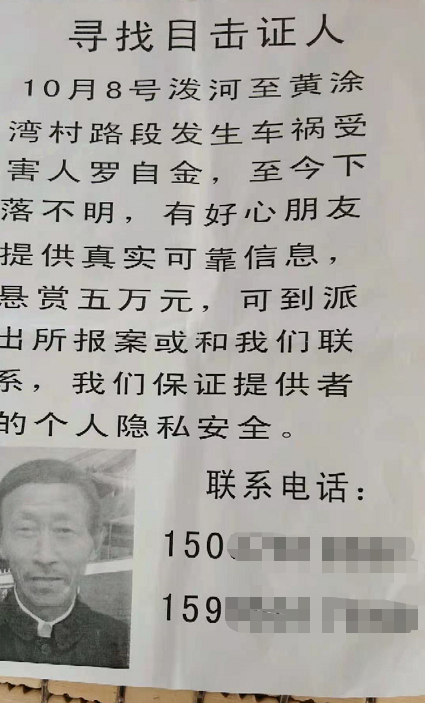 寻找目击证人
10月8号泼河至黄涂
湾村路段发生车祸受
害人罗自金，至今下
落不明，有好心朋友
提供真实可靠信息，
悬赏五万元，可到派
出所报案或和我们联
系，我们保证提供者
的个人隐私安全。
联系电话：
150
159